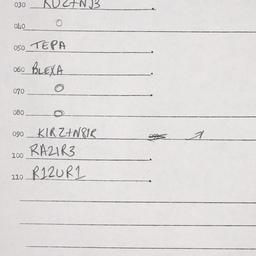 030 KUZ+NJ3
040 O
050 TEPA
060 BLEXA
070 O
080 O
090 KIRZ+N8IR
100 RAZIR3
110 R1ZUR1